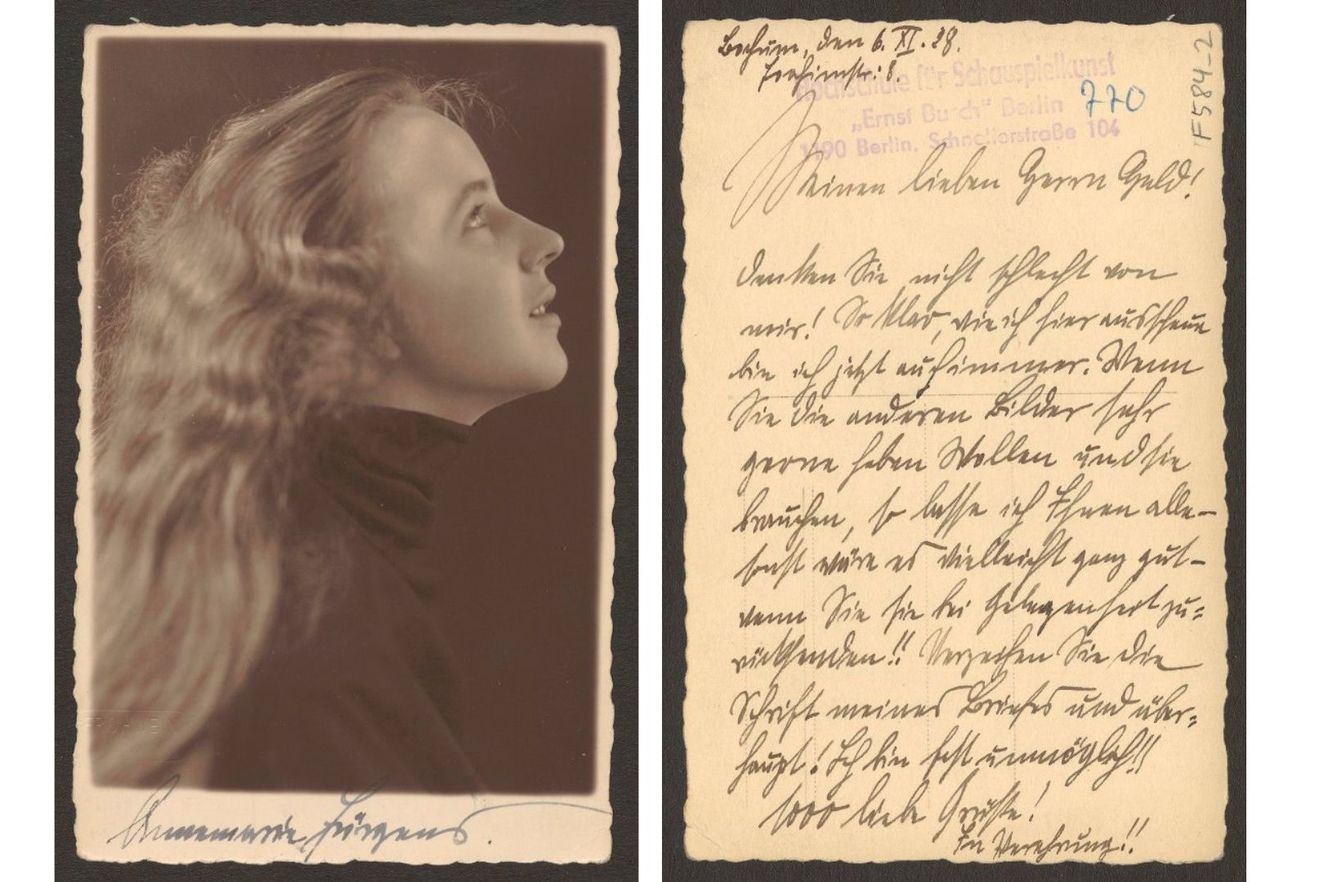 Annemarie Jürgens.
Bochum, den 6. XI. 28.
Hochschule für Schauspielkunst
„Ernst Busch“ Berlin
1190 Berlin, Schnellerstraße 104
770
F584-2
Meinen lieben Herrn Geld!
denken Sie nicht schlecht von
mir! So klar, wie ich hier ausschaue
bin ich jetzt auf immer. Wenn
Sie die anderen Bilder sehr
gerne haben Wollen und sie
brauchen, so lasse ich Ihnen alle –
sonst wäre es vielleicht ganz gut –
wenn Sie sie bei Gelegenheit zu=
rücksenden!! Verzeihen Sie die
Schrift meines Briefes und über=
haupt! Ich bin fast unmöglich!!
1000 liebe Grüße!
In Verehrung!!